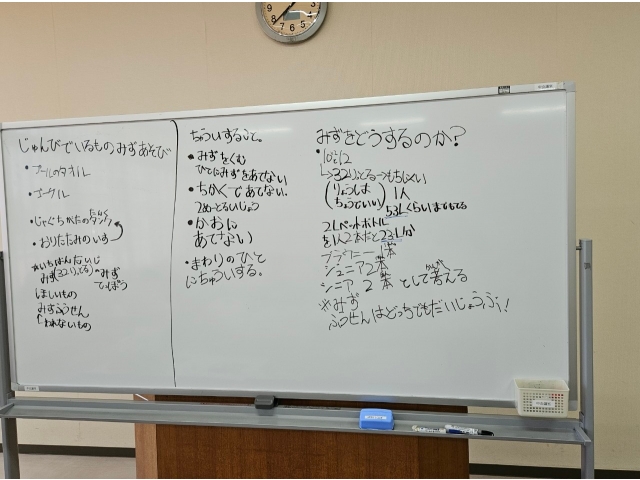 じゅんびでいるもの みずあそび
・プールのタオル
・ゴーグル
・じゃぐちがたのタンク
・おりたたみのいす
☆いちばんだいじ
みず(32りっとる)・みず
てっぽう
ほしいもの
みずふうせん
われないもの
ちゅういすること。
・みずをくむ
ひとにみずをあてない
・ちかくであてない。
2めーとるいじょう
・かおに
あてない
・まわりのひと
にちゅういする。
みずをどうするのか?
・10:12
↳32りっとる→もちにくい
(りょうしま
ちょうでいい) 1人
5.3Lくらいまでもてる
2Lペットボトル
を1人2本だと23Lが
ブラウニー1本
ジュニア2本
シニア2本 として考える
※みず
ふうせんはどっちでもだいじょうぶ!